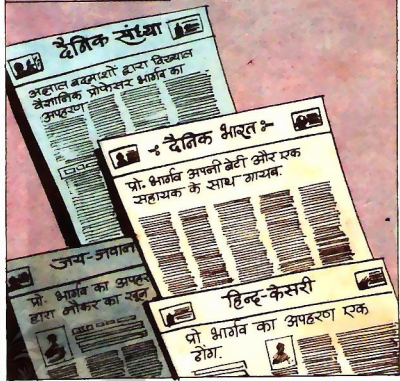 दैनिक संध्या
अज्ञात बदमाशों द्वारा विख्यात
वैज्ञानिक प्रोफेसर भार्गव का
अपहरण
दैनिक भारत
प्रो. भार्गव अपनी बेटी और एक
सहायक के साथ गायब.
जय-जवान
प्रो. भार्गव का अपहर
द्वारा नौकर का खून
हिन्द-केसरी
प्रो भार्गव का अपहरण एक
ढोंग.